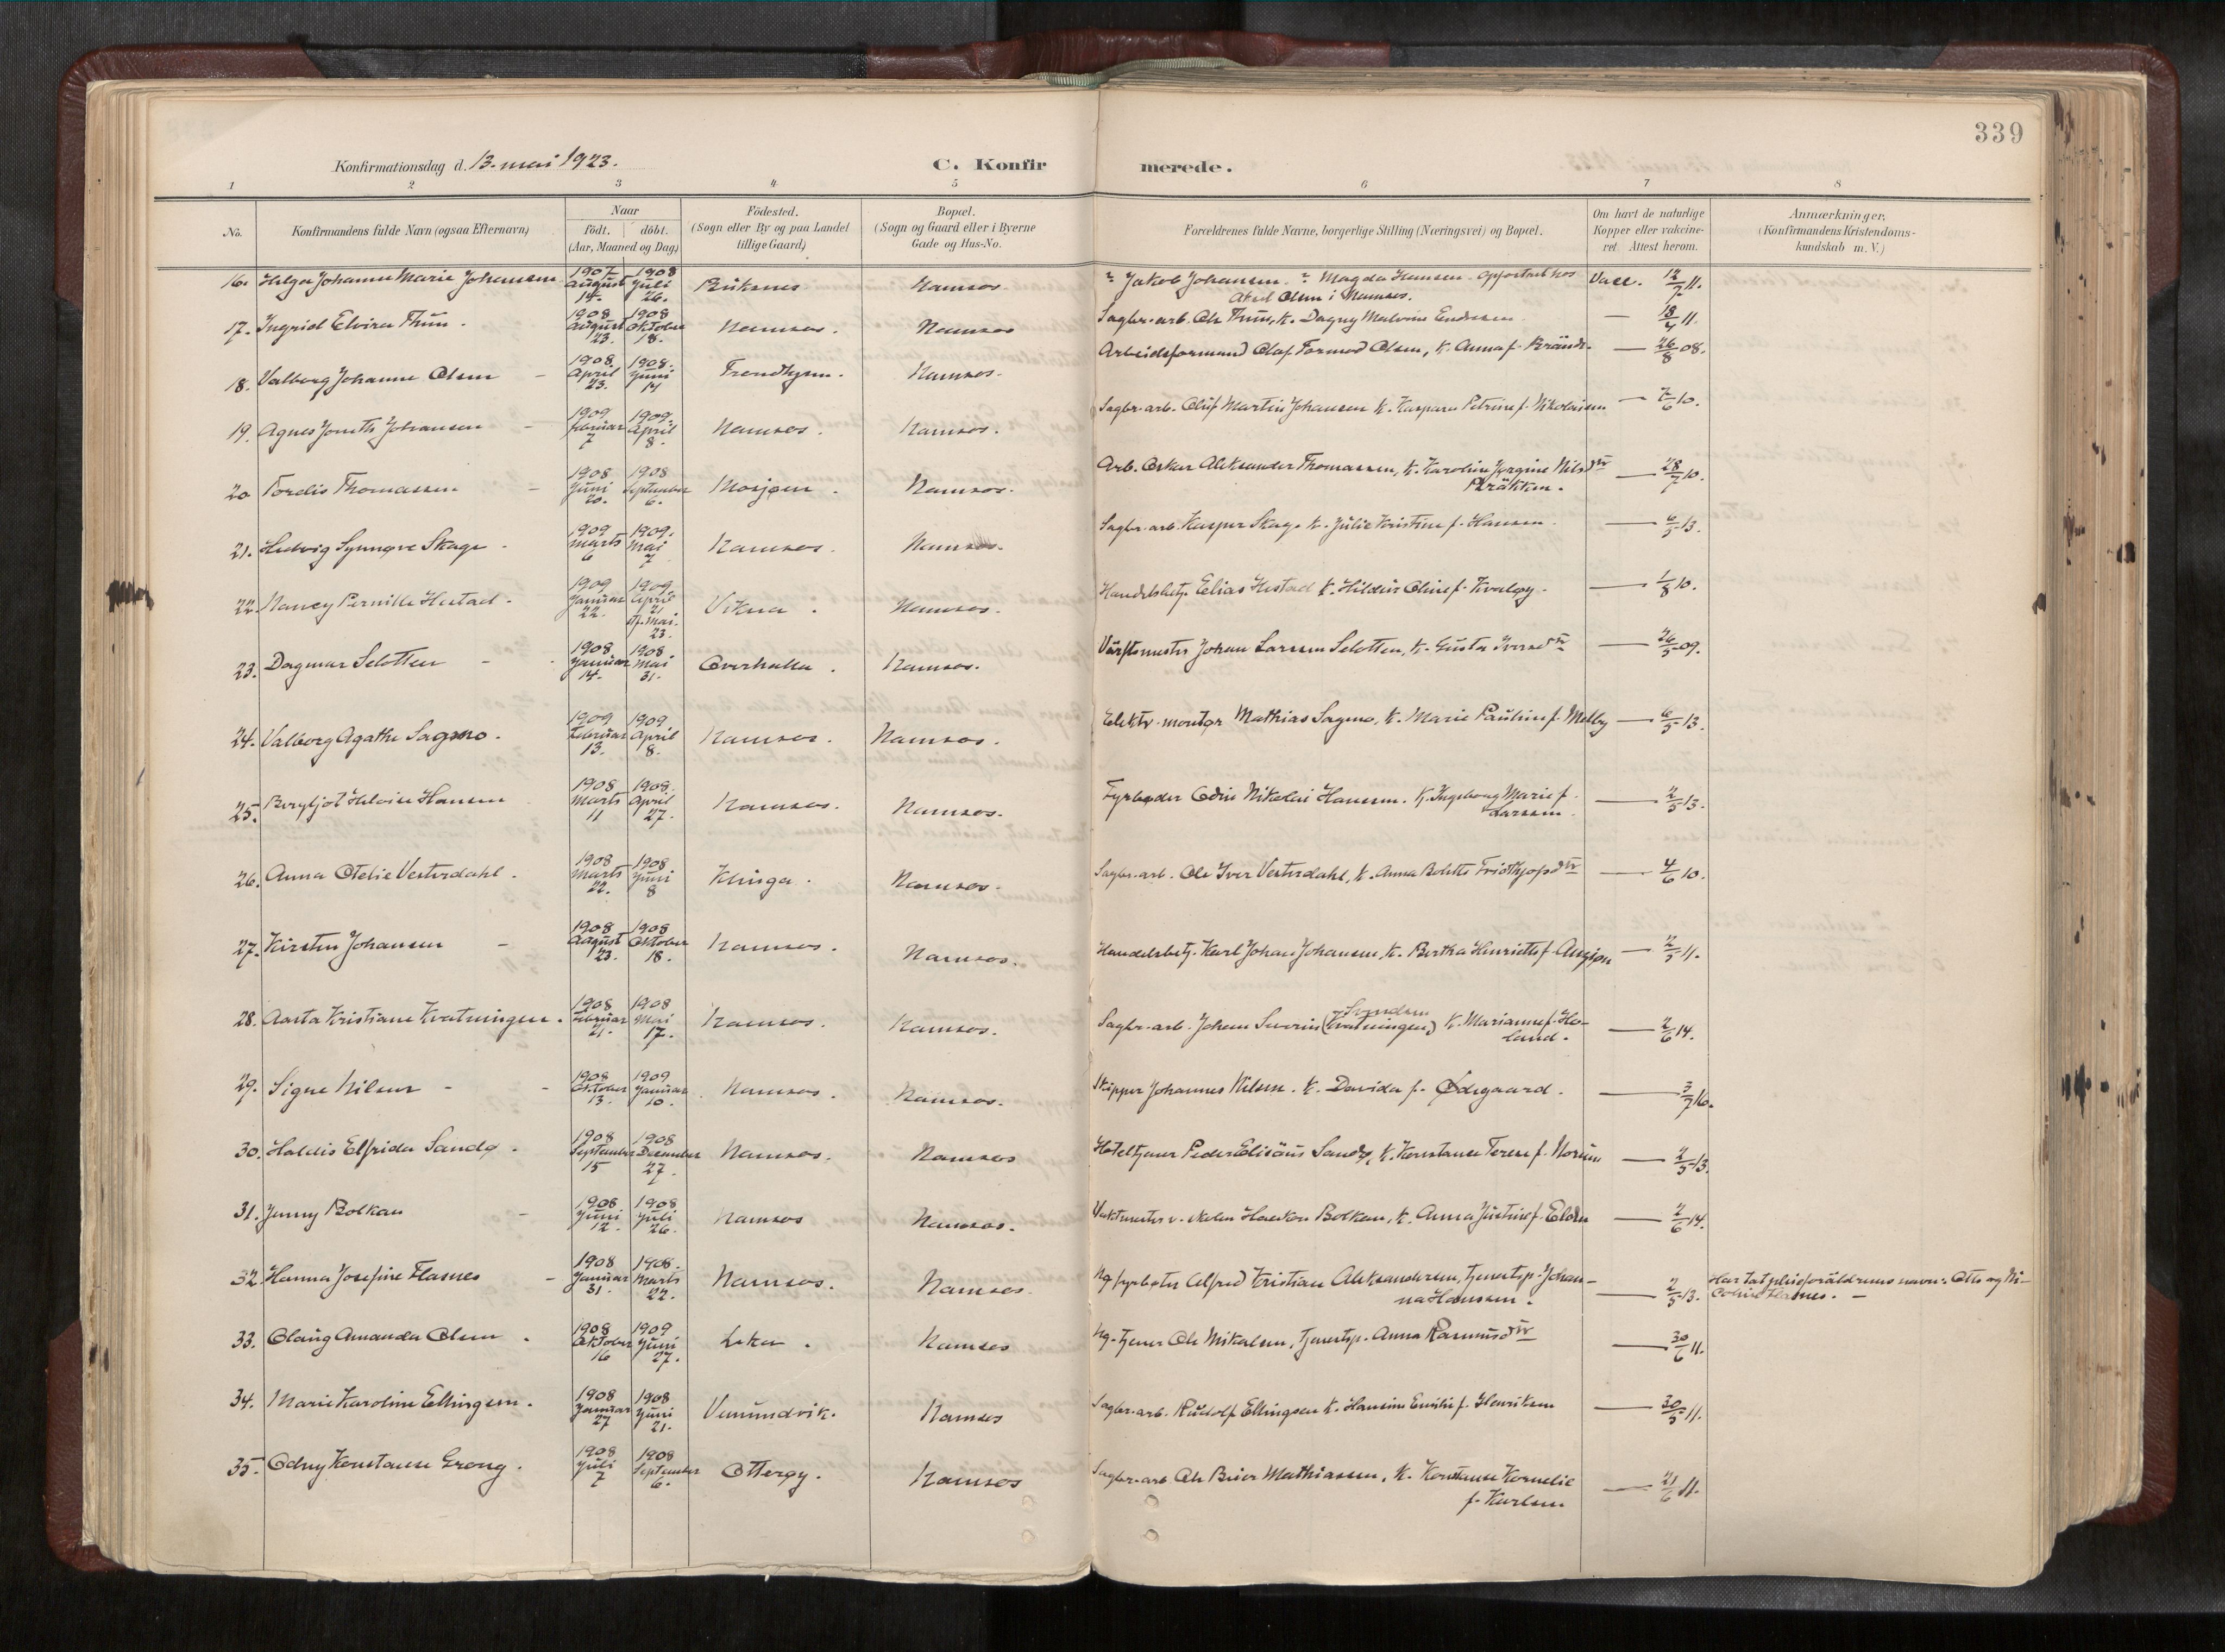 339
Konfirmationsdag d. 13. mai 1923.
C. Konfir
merede.
1 2 3 4 5 6 7 8
No.
Konfirmandens fulde Navn (ogsaa Efternavn)
Naar
födt. döbt.
(Aar, Maaned og Dag)
Födested.
(Sogn eller By og paa Landet
tillige Gaard)
Bopæl.
(Sogn og Gaard eller i Byerne
Gade og Hus-No.
Forældrenes fulde Navne, borgerlige Stilling (Næringsvei) og Bopæl.
Om havt de naturlige
Kopper eller vakcine-
ret. Attest herom.
Anmærkninger.
(Konfirmandens Kristendoms-
kundskab m. V.)
16. Helga Johanne Marie Johansen 1907 August 14. 1908 Juli 26. Namsos Jakob Johansen. Magda Hansen. opfostret hos Vacc. 12/7 11.
Aksel Olsen i Namsos.
17. Ingrid Elvira Thun. 1908 August 23. 1908 Oktober 18. Namsos. Namsos Sagbr-arb. Ole Thun, K. Dagny Malvine Endresen — 18/4 11.
18. Valborg Johanne Olsen – 1908. April 23. 1908. Juni 14 Trondhjem. Namsos. Arbeidsformand Olaf Formod Olsen, K. Anna f. — 26/8 08.
19. Agnes Joneth Johansen – 1909 Februar 7 1909. April 8. Namsos. Namsos. Sagbr-arb. Oluf Martin Johansen K. Kaspara Petrine f. Nikolaisen — 7/6 10.
20. Tordis Thomassen – 1908 Juni 20. 1908 September 6. Mosjøen. Namsos. Arb. Oskar Aleksander Thomassen, K. Karoline Jørgine Nilsdtr — 28/7 10.
21. Hedvig Synnøve Skage. 1909 Marts 6 1909. Mai 7 Namsos. Namsos. Sagbr-arb. Kasper Skage K. Julie Kristine f. Hansen. — 6/5 13.
22. Nancy Pernille Hestad. 1909 Januar 22. 1909. April 21 stf. Mai. 23. Vikna. Namsos. Handelsbetj. Elias Hestad K. Hildur Oline f. Kvaløy. — 1/8 10.
23. Dagmar Selotten – 1908 Januar 14. 1908. Mai 31. Overhalla. Namsos. Værftsmester Johan Larssen Selotten, K. Gusta Iversdtr — 26/5 09.
24. Valborg Agathe Sagmo. 1909 Februar 13. 1909 April 8. Namsos. Namsos. Elektr. montør Mathias Sagmo, K. Marie Pauline f. Melby — 6/5 13.
25. Bergljot Helvine Hansen 1908 Marts 11 1908. April 27. Namsos. Namsos. Fyrbøder Odin Nikolai Hansen. K. Ingeborg Marie f. — 2/5 13.
Larssen.
26. Anna Otelie Vesterdahl. 1908 Marts 22. 1908. Juni 8 Klinga. Namsos. Sagbr-arb. Ole Iver Vesterdahl, K. Anna Bolette Fridthjofsdtr — 4/6 10.
27. Kirsten Johansen – 1908 August 23. 1908 Oktober 18. Namsos. Namsos. Handelsbetj. Karl Johan Johansen, K. Bertha Henriette f. — 2/5 11.
28. Aasta Kristiane Kvatningen. 1908 Februar 21. 1908 Mai 17. Namsos. Namsos. Sagbr-arb. Johan Severin Svendsen (Kvatningen) K. Marianne f. Ho- — 2/6 14.
land.
29. Signe Nilsen – 1908 Oktober 13. 1909 Januar 10. Namsos. Namsos. Skipper Johannes Nilsen. K. Davida f. Ødegaard. — 3/7 16.
30. Haldis Elfrida Sandø. 1908 September 15 1908 December 27. Namsos. Namsos Hoteltjener Peder Elisæus Sandø, K. Konstanse Terese f. Norum — 2/5 13.
31. Jenny Bolkan – 1908 Juni 12. 1908. Juli 26. Namsos Namsos. Vaktmester v. skolen Haakon Bolkan, K. Anna Justine f. Elden — 2/6 14.
32. Hanna Josefine Flasnes – 1908 Januar 31. 1908. Marts 22. Namsos. Namsos. Ug. fyrbøter Alfred Kristian Aleksandersen, tjenestep. Johan- — 2/5 13. Har tat pleieforældrenes navn: Otto og Ni-
na Hanssen. coline Flasnes. –
33. Olaug Amanda Olsen. 1908 Oktober 16 1909 Juni 27. Leka. Namsos Ug. tjener Ole Mikalsen, tjenestep. Anna Rasmusdtr — 30/6 11.
34. Marie Karoline Ellingsen. 1908 Januar 27 1908 Juni 21. Vemundvik. Namsos Sagbr-arb. Rudolf Ellingsen K. Hansine Emilie f. Henriksen — 30/5 11.
35. Odny Konstanse Grong. 1908 Juli 7 1908 September 6. Otterøy. Namsos Sagbr-arb. Ole Beier Mathiassen, K. Konstanse Kornelie — 21/6 11.
f. Karlsen